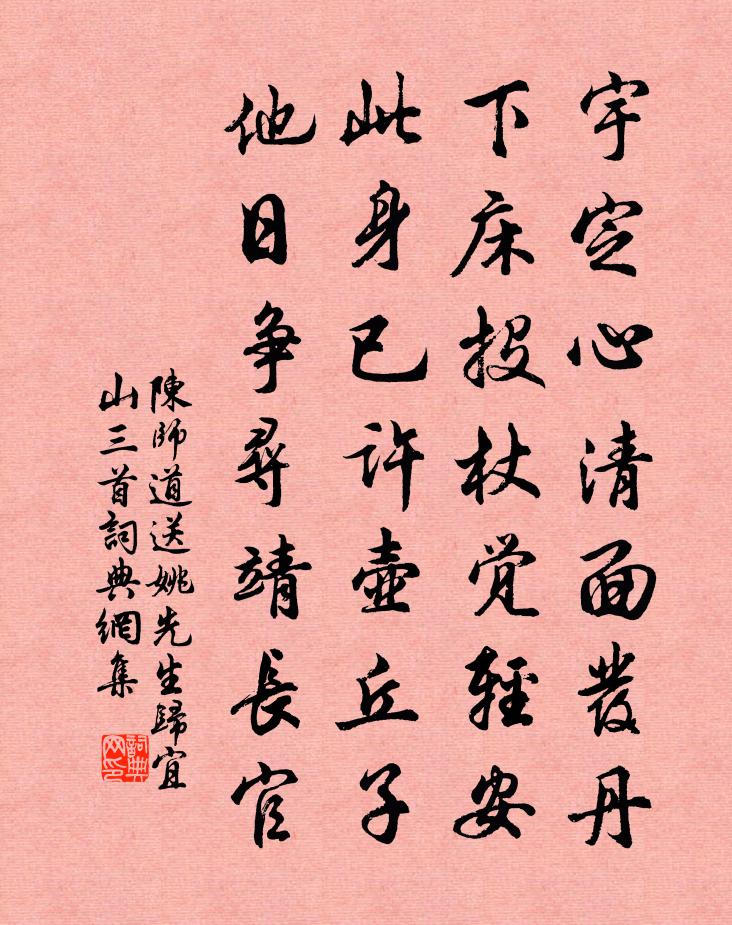 宇定心清面發丹
下床投杖覺輕安
此身已許壺丘子
他日爭尋靖長官
陳師道送姚先生歸宜
山三首詞典網集
詞典
网印